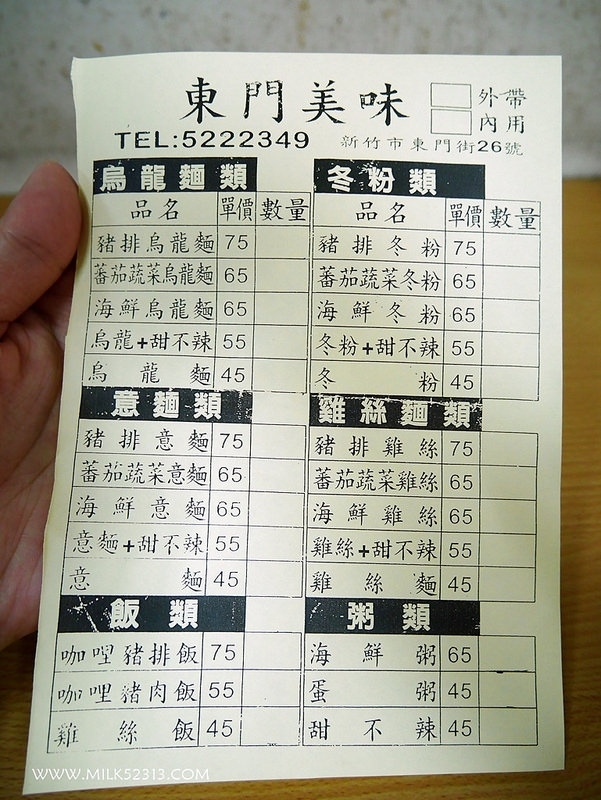 東門美味
外帶
內用
TEL:5222349
新竹市東門街26號
烏龍麵類
品名 單價 數量
豬排烏龍麵 75
蕃茄蔬菜烏龍麵 65
海鮮烏龍麵 65
烏龍+甜不辣 55
烏龍麵 45
冬粉類
品名 單價 數量
豬排冬粉 75
蕃茄蔬菜冬粉 65
海鮮冬粉 65
冬粉+甜不辣 55
冬粉 45
意麵類
豬排意麵 75
蕃茄蔬菜意麵 65
海鮮意麵 65
意麵+甜不辣 55
意麵 45
雞絲麵類
豬排雞絲 75
蕃茄蔬菜雞絲 65
海鮮雞絲 65
雞絲+甜不辣 55
雞絲麵 45
飯類
咖哩豬排飯 75
咖哩豬肉飯 55
雞絲飯 45
粥類
海鮮粥 65
蛋粥 45
甜不辣 45
WWW.MILK52313.COM